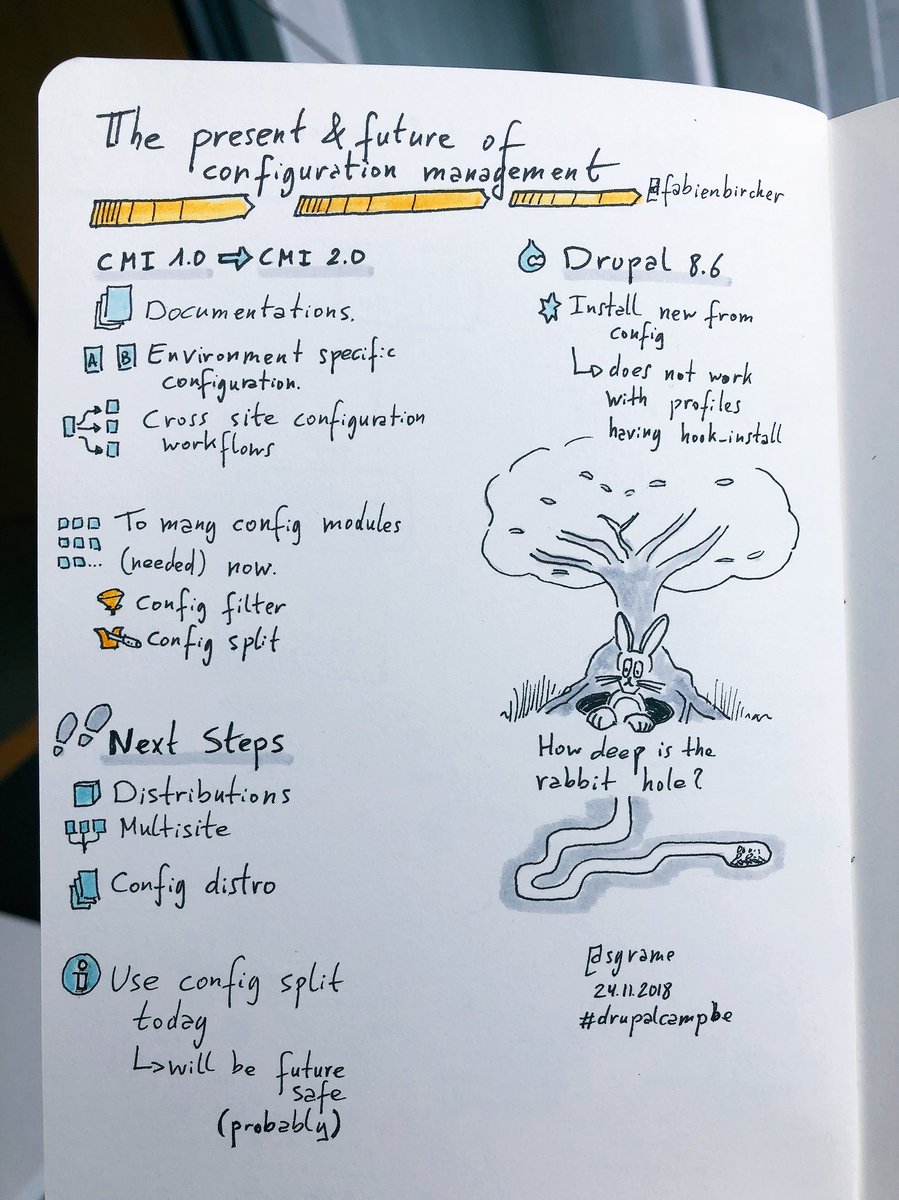 The present & future of
configuration management
@fabienbircher
CMI 1.0 ⇨ CMI 2.0
Documentations.
A B Environment specific
configuration.
Cross site configuration
workflows
To many config modules
(needed) now.
Config filter
Config split
Next Steps
Distributions
Multisite
Config distro
i Use config split
today
↳ will be future
safe
(probably)
Drupal 8.6
Install new from
config
↳ does not work
with profiles
having hook_install
How deep is the
rabbit hole?
@sgrame
24.11.2018
#drupalcampbe